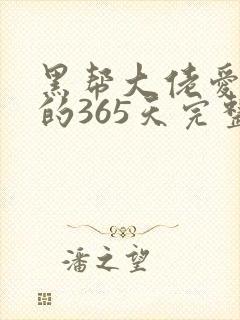 黑帮大佬爱
的365天完整
潘之望